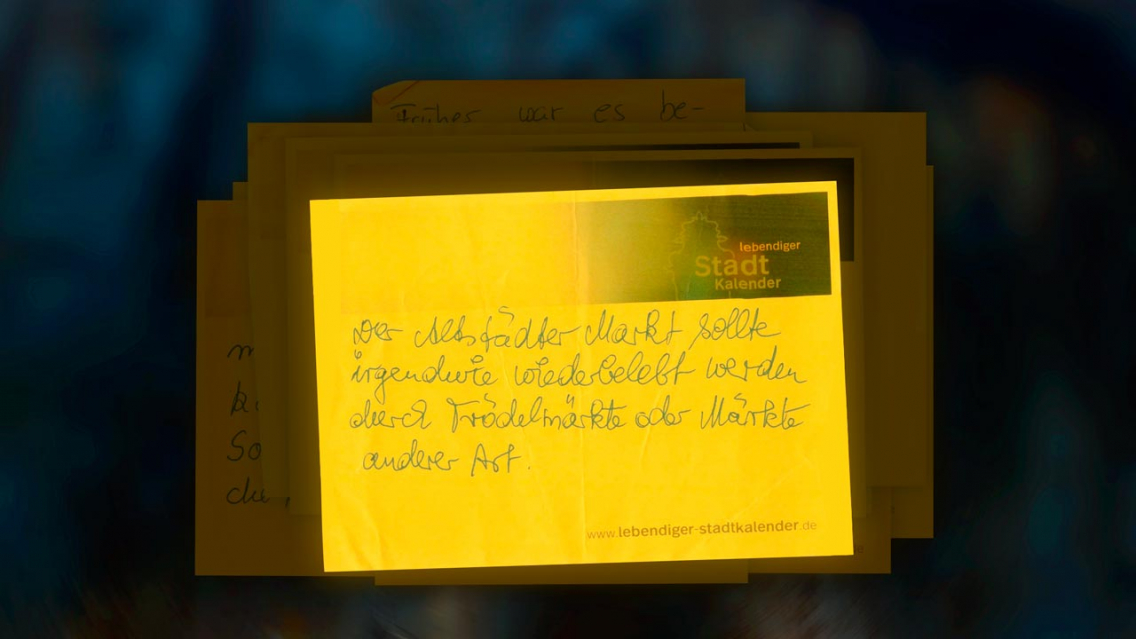 Früher war es be-
lebendiger
Stadt
Kalender
Der Altstädter Markt sollte
irgendwie wiederbelebt werden
durch Trödelmärkte oder Märkte
anderer Art.
So
www.lebendiger-stadtkalender.de